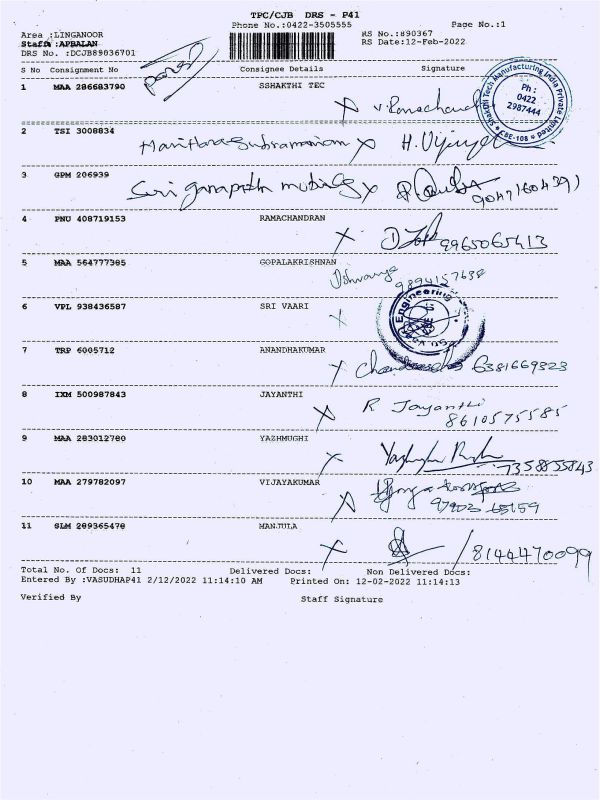 TPC/CJB DRS - P41
Phone No.:0422-3505555 Page No.:1
Area :LINGANOOR RS No.:890367
Staff :APBALAN RS Date:12-Feb-2022
DRS No. :DCJB89036701
S No Consignment No Consignee Details Signature
1 MAA 286683790 SSHAKTHI TEC
Shakthi Tech Manufacturing India Private Limited
Ph :
0422
2987444
2 TSI 3008834
3 GPM 206939
4 PNU 408719153 RAMACHANDRAN
9965065413
5 MAA 564777385 GOPALAKRISHNAN
9894157638
6 VPL 938436587 SRI VAARI
Engineering
7 TRP 6005712 ANANDHAKUMAR
6381669323
8 IXM 500987843 JAYANTHI
R Jayanthi
8610575585
9 MAA 283012780 YAZHMUGHI
7358855843
10 MAA 279782097 VIJAYAKUMAR
11 SLM 289365478 MANJULA
8144470099
Total No. Of Docs: 11 Delivered Docs: Non Delivered Docs:
Entered By :VASUDHAP41 2/12/2022 11:14:10 AM Printed On: 12-02-2022 11:14:13
Verified By Staff Signature